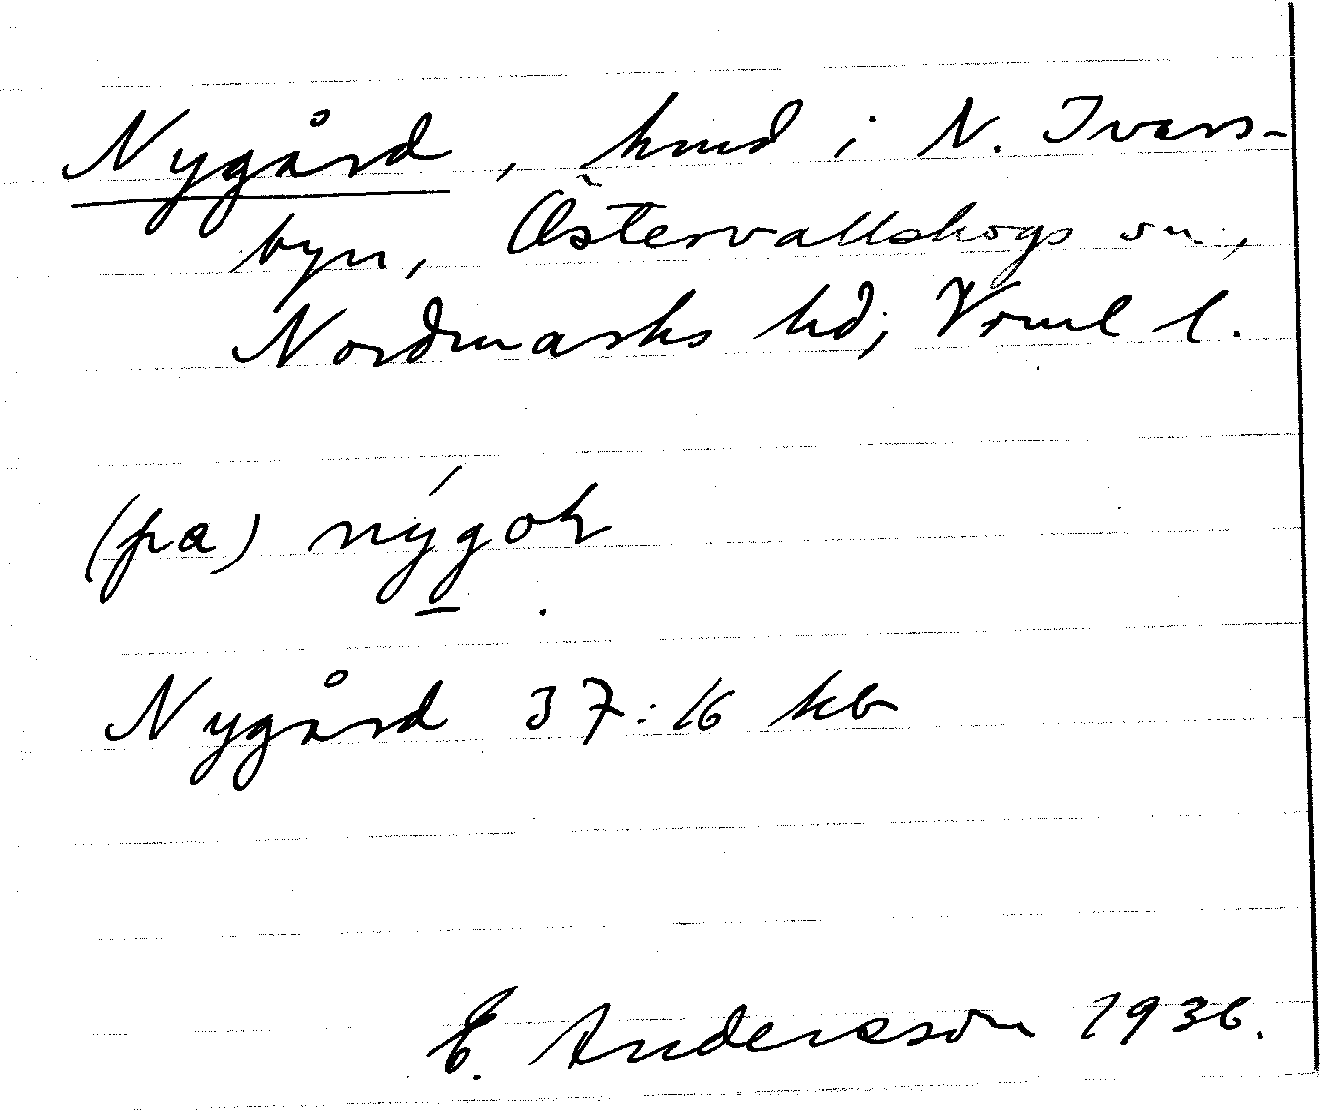 Nygård, hmd i N. Ivars-
byn, Östervallskogs sn,
Nordmarks hd, Vrml l.
(pa) nýgok
Nygård 37:16 kb
E. Andersson 1936.